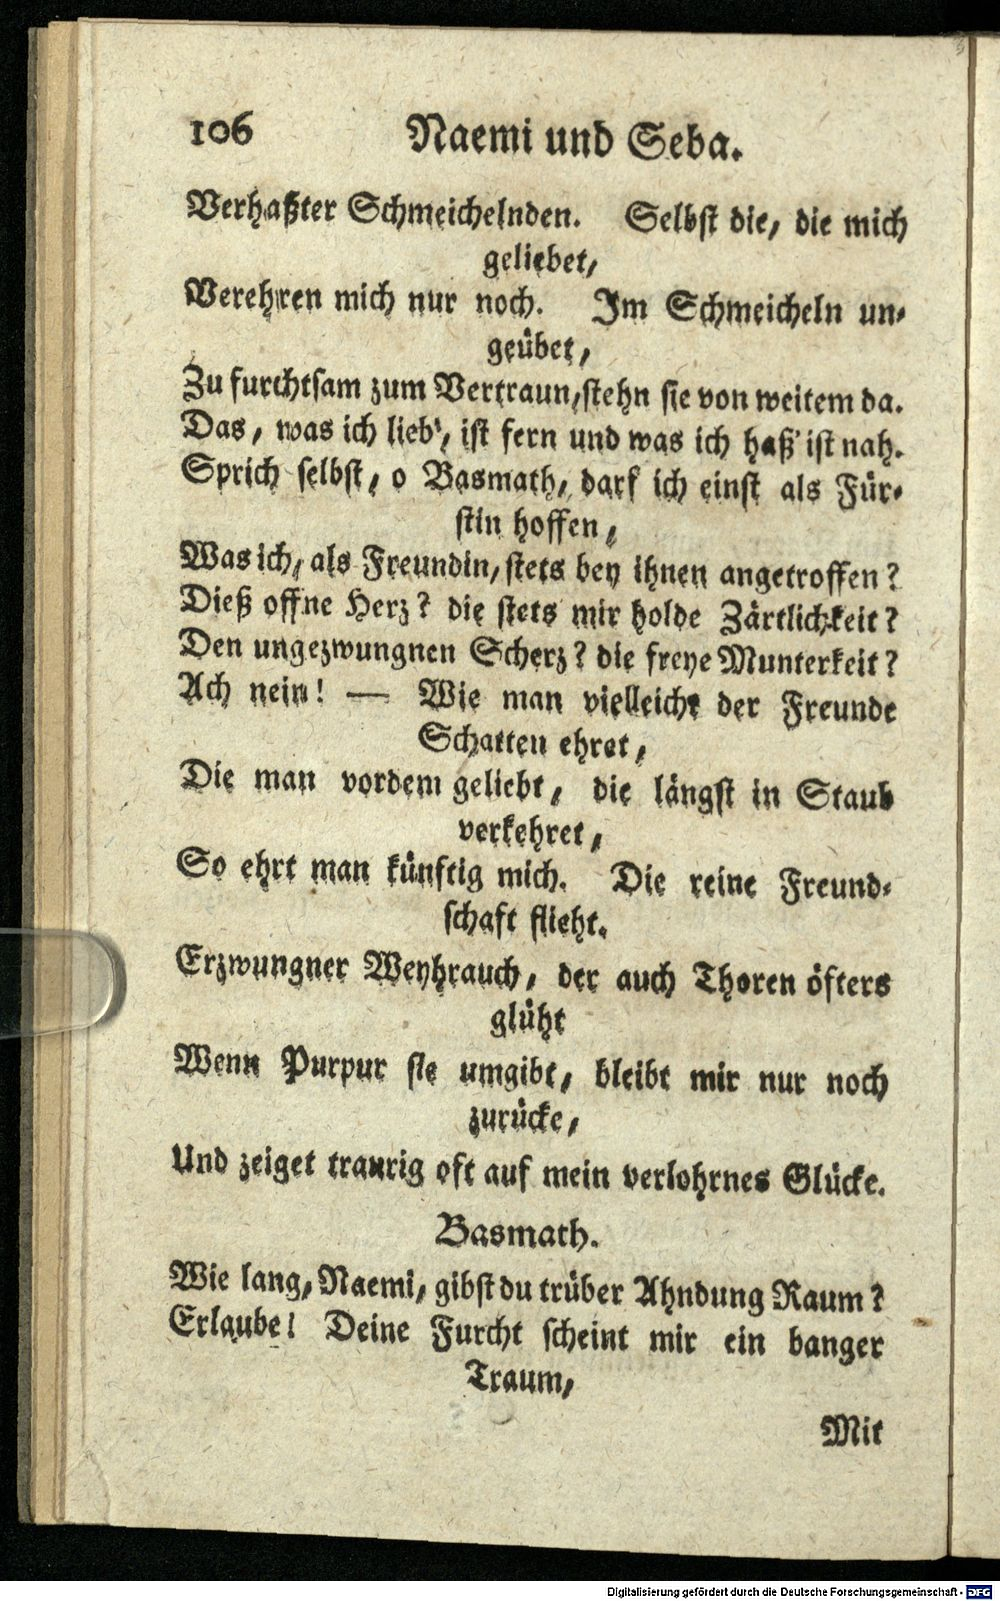 106 Naemi und Seba.
Verhaßter Schmeichelnden. Selbst die, die mich
geliebet,
Verehren mich nur noch. Im Schmeicheln un-
geübet,
Zu furchtsam zum Vertraun, stehn sie von weitem da.
Das, was ich lieb', ist fern und was ich haß' ist nah.
Sprich selbst, o Basmath, darf ich einst als Für-
stin hoffen,
Was ich, als Freundin, stets bey ihnen angetroffen?
Dieß offne Herz? die stets mir holde Zärtlichkeit?
Den ungezwungnen Scherz? die freye Munterkeit?
Ach nein! — Wie man vielleicht der Freunde
Schatten ehret,
Die man vordem geliebt, die längst in Staub
verkehret,
So ehrt man künftig mich. Die reine Freund-
schaft flieht.
Erzwungner Weyhrauch, der auch Thoren öfters
glüht
Wenn Purpur sie umgibt, bleibt mir nur noch
zurücke,
Und zeiget traurig oft auf mein verlohrnes Glücke.
Basmath.
Wie lang, Naemi, gibst du trüber Ahndung Raum?
Erlaube! Deine Furcht scheint mir ein banger
Traum,
Mit
Digitalisierung gefördert durch die Deutsche Forschungsgemeinschaft - DFG